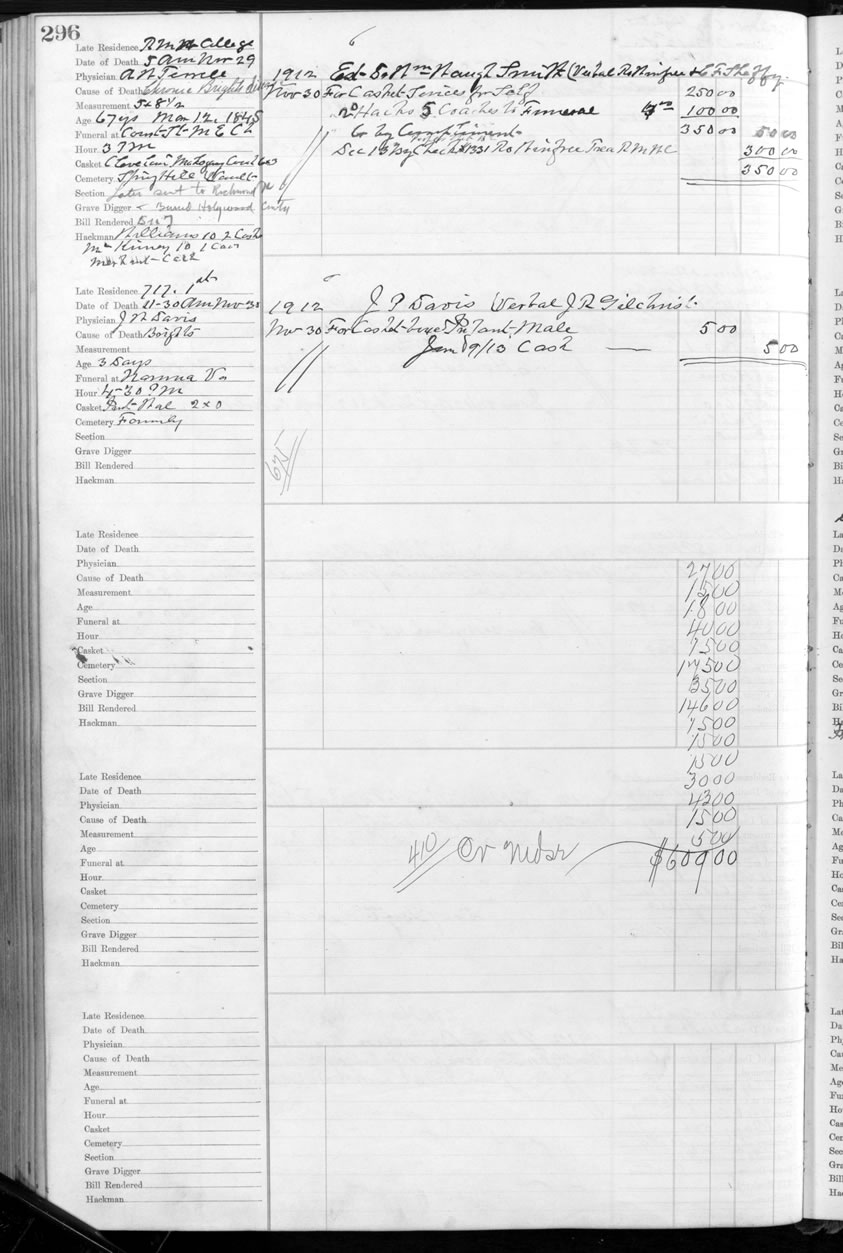 296
Late Residence R M W College
Date of Death 5 am Nov 29
Physician A W Terrell
Cause of Death Chronic Brights
Measurement 5x8 1/2
Age 67 yrs Mar 12, 1845
Funeral at Court St M E Ch
Hour 3 PM
Casket Cleveland Mahogany
Cemetery Spring Hill Vault
Section Later sent to Richmond
Grave Digger Buried Holywood
Bill Rendered
Hackman Williams 10 2
Kinney 10 1
1912 Ed. So. Wm Waugh Smith (Verbal
Nov 30 For Casket Services 250 00
Hacks 5 Coaches to Funeral 100 00
Cr by Compliments 350 00 50 00
Dec 13 By Check #1331 Treas R M W C 300 00
350 00
Late Residence 717. 1st
Date of Death 11-30 am Nov 30
Physician J W Davis
Cause of Death Brights
Measurement
Age 3 Days
Funeral at Va
Hour 4-30 PM
Casket 2x0
Cemetery Family
Section
Grave Digger
Bill Rendered
Hackman
1912 J P Davis Verbal J R Gilchrist
Nov 30 For Casket Infant Male 5 00
Jan 9/13 Cash 5 00
675
Late Residence
Date of Death
Physician
Cause of Death
Measurement
Age
Funeral at
Hour
Casket
Cemetery
Section
Grave Digger
Bill Rendered
Hackman
27 00
15 00
18 00
40 00
75 00
175 00
35 00
146 00
75 00
15 00
15 00
30 00
43 00
15 00
5 00
410 Cr Mdse $609 00
Late Residence
Date of Death
Physician
Cause of Death
Measurement
Age
Funeral at
Hour
Casket
Cemetery
Section
Grave Digger
Bill Rendered
Hackman
Late Residence
Date of Death
Physician
Cause of Death
Measurement
Age
Funeral at
Hour
Casket
Cemetery
Section
Grave Digger
Bill Rendered
Hackman